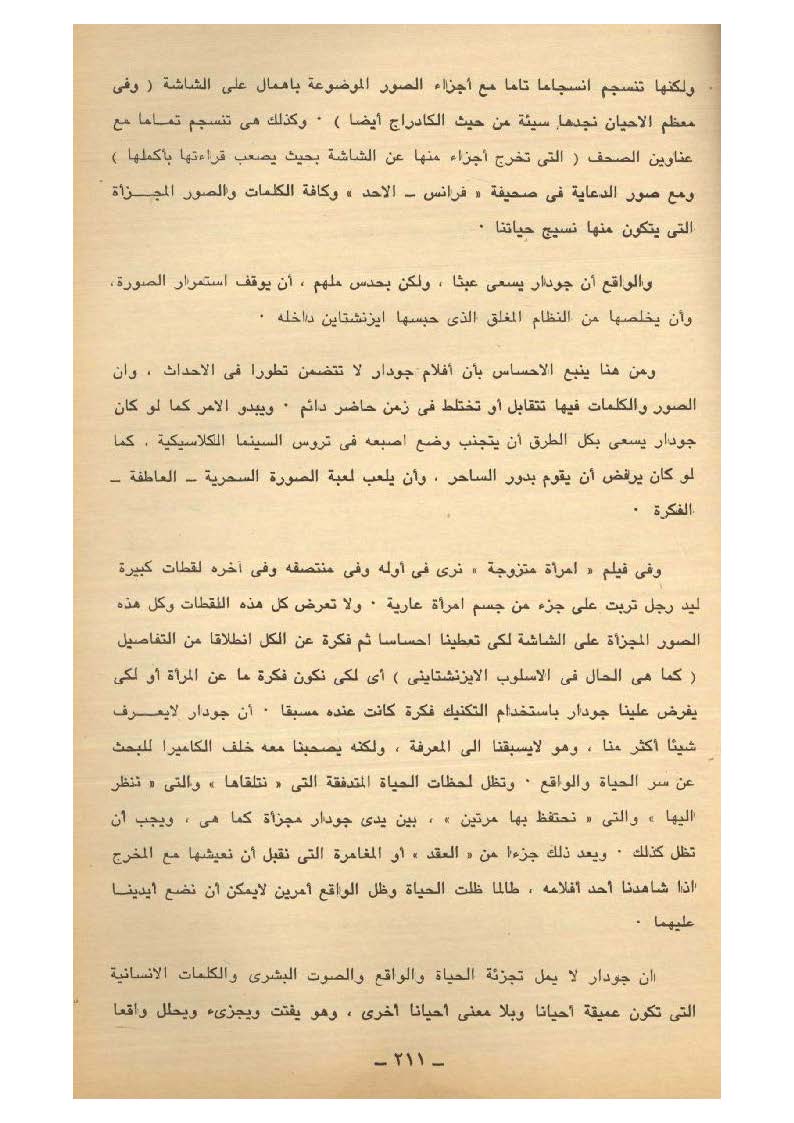 ولكنها تنسجم انسجاما تاما مع أجزاء الصور الموضوعة باهمال على الشاشة ( وفى
معظم الاحيان نجدها سيئة من حيث الكادراج أيضا ) ٠ وكذلك هى تنسجم تمــاما مع
عناوين الصحف ( التى تخرج أجزاء منها عن الشاشة بحيث يصعب قراءتها بأكملها )
ومع صور الدعاية فى صحيفة « فرانس ـ الاحد » وكافة الكلمات والصور المجــزأة
التى يتكون منها نسيج حياتنا ٠
والواقع أن جودار يسعى عبثا ، ولكن بحدس ملهم ، أن يوقف استمرار الصورة،
وأن يخلصها من النظام المغلق الذى حبسها ايزنشتاين داخله ٠
ومن هنا ينبع الاحساس بأن أفلام جودار لا تتضمن تطورا فى الاحداث ، وان
الصور والكلمات فيها تتقابل أو تختلط فى زمن حاضر دائم ٠ ويبدو الامر كما لو كان
جودار يسعى بكل الطرق أن يتجنب وضع اصبعه فى تروس السينما الكلاسيكية ، كما
لو كان يرفض أن يقوم بدور الساحر ، وأن يلعب لعبة الصورة السحرية ـ العاطفة ـ
الفكرة ٠
وفى فيلم « امرأة متزوجة » نرى فى أوله وفى منتصفه وفى آخره لقطات كبيرة
ليد رجل تربت على جزء من جسم امرأة عارية ٠ ولا تعرض كل هذه اللقطات وكل هذه
الصور المجزأة على الشاشة لكى تعطينا احساسا ثم فكرة عن الكل انطلاقا من التفاصيل
( كما هى الحال فى الاسلوب الايزنشتاينى ) أى لكى نكون فكرة ما عن المرأة أو لكى
يفرض علينا جودار باستخدام التكنيك فكرة كانت عنده مسبقا ٠ أن جودار لايعــرف
شيئا أكثر منا ، وهو لايسبقنا الى المعرفة ، ولكنه يصحبنا معه خلف الكاميرا للبحث
عن سر الحياة والواقع ٠ وتظل لحظات الحياة المتدفقة التى « نتلقاها » والتى « ننظر
اليها » والتى « نحتفظ بها مرتين » ، بين يدى جودار مجزأة كما هى ، ويجب أن
تظل كذلك ٠ ويعد ذلك جزءا من « العقد » أو المغامرة التى نقبل أن نعيشها مع المخرج
اذا شاهدنا أحد أفلامه ، طالما ظلت الحياة وظل الواقع أمرين لايمكن أن نضع أيدينــا
عليهما ٠
ان جودار لا يمل تجزئة الحياة والواقع والصوت البشرى والكلمات الانسانية
التى تكون عميقة أحيانا وبلا معنى أحيانا أخرى ، وهو يفتت ويجزىء ويحلل واقعا
ـ ٢١١ ـ